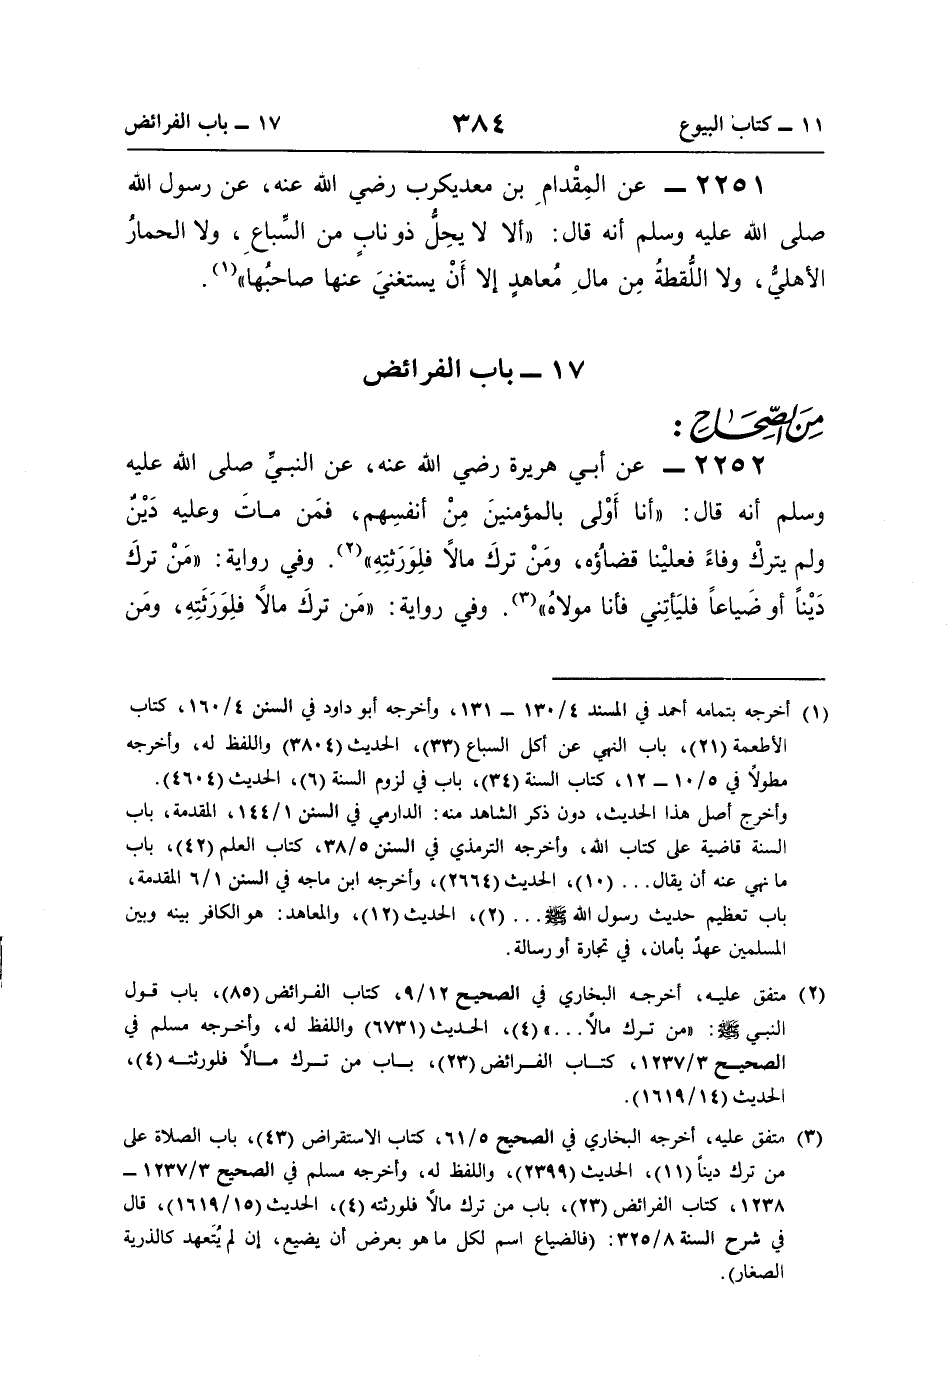 ١١ ــ كتاب البيوع ٣٨٤ ١٧ ــ باب الفرائض
٢٢٥١ ــ عن المِقْدامِ بن معديكرب رضي الله عنه، عن رسول الله
صلى الله عليه وسلم أنه قال: «ألا لا يحِلُّ ذو نابٍ من السِّباعِ، ولا الحمارُ
الأهليُّ، ولا اللُّقطةُ مِن مالِ مُعاهدٍ إلا أَنْ يستغنيَ عنها صاحبُها»(١).
١٧ ــ باب الفرائض
مِنَ الصِّحَاحِ:
٢٢٥٢ ــ عن أبي هريرة رضي الله عنه، عن النبيِّ صلى الله عليه
وسلم أنه قال: «أنا أَوْلى بالمؤمنينَ مِنْ أنفسِهم، فمَن ماتَ وعليه دَيْنٌ
ولم يتركْ وفاءً فعليْنا قضاؤه، ومَنْ تركَ مالاً فلِوَرَثتِهِ»(٢). وفي رواية: «مَنْ تركَ
دَيْناً أو ضَياعاً فليَأتِني فأنا مولاهُ»(٣). وفي رواية: «مَن تركَ مالاً فلِوَرَثَتِهِ، ومَن
(١) أخرجه بتمامه أحمد في المسند ١٣٠/٤ ــ ١٣١، وأخرجه أبو داود في السنن ١٦٠/٤، كتاب
الأطعمة (٢١)، باب النهي عن أكل السباع (٣٣)، الحديث (٣٨٠٤) واللفظ له، وأخرجه
مطولاً في ١٠/٥ ــ ١٢، كتاب السنة (٣٤)، باب في لزوم السنة (٦)، الحديث (٤٦٠٤).
وأخرج أصل هذا الحديث، دون ذكر الشاهد منه: الدارمي في السنن ١٤٤/١، المقدمة، باب
السنة قاضية على كتاب الله، وأخرجه الترمذي في السنن ٣٨/٥، كتاب العلم (٤٢)، باب
ما نهي عنه أن يقال... (١٠)، الحديث (٢٦٦٤)، وأخرجه ابن ماجه في السنن ٦/١ المقدمة،
باب تعظيم حديث رسول الله ﷺ... (٢)، الحديث (١٢)، والمعاهد: هو الكافر بينه وبين
المسلمين عهدٌ بأمان، في تجارة أو رسالة.
(٢) متفق عليه، أخرجه البخاري في الصحيح ٩/١٢، كتاب الفرائض (٨٥)، باب قول
النبي ﷺ: «من ترك مالاً...» (٤)، الحديث (٦٧٣١) واللفظ له، وأخرجه مسلم في
الصحيح ١٢٣٧/٣، كتاب الفرائض (٢٣)، باب من ترك مالاً فلورثته (٤)،
الحديث (١٦١٩/١٤).
(٣) متفق عليه، أخرجه البخاري في الصحيح ٦١/٥، كتاب الاستقراض (٤٣)، باب الصلاة على
من ترك ديناً (١١)، الحديث (٢٣٩٩)، واللفظ له، وأخرجه مسلم في الصحيح ١٢٣٧/٣ ــ
١٢٣٨، كتاب الفرائض (٢٣)، باب من ترك مالاً فلورثته (٤)، الحديث (١٦١٩/١٥)، قال
في شرح السنة ٣٢٥/٨: (فالضياع اسم لكل ما هو بعرض أن يضيع، إن لم يُتعهد كالذرية
الصغار).